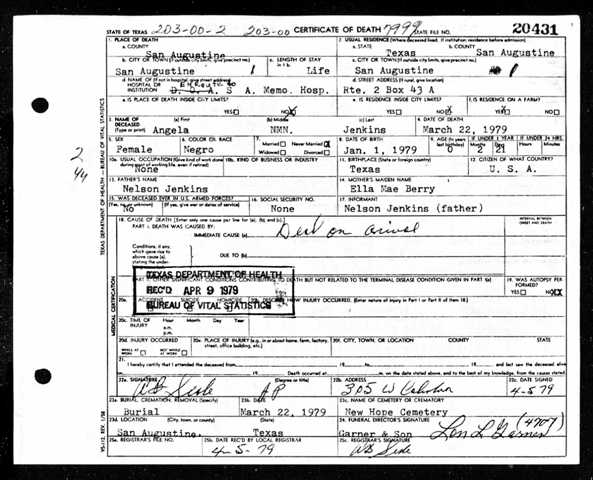 STATE OF TEXAS 203-00-2 203-00 CERTIFICATE OF DEATH 7999 STATE FILE NO. 20431
1. PLACE OF DEATH 2. USUAL RESIDENCE (Where deceased lived. If institution: residence before admission)
a. COUNTY San Augustine a. STATE Texas b. COUNTY San Augustine
b. CITY OR TOWN (If outside city limits, give precinct no.) c. LENGTH OF STAY in 1 b. c. CITY OR TOWN (If outside city limits, give precinct no.)
San Augustine 1 Life San Augustine 1
d. NAME OF (If not in hospital, give street address) d. STREET ADDRESS (If rural, give location)
HOSPITAL OR INSTITUTION Enroute to S A. Memo. Hosp. Rte. 2 Box 43 A
e. IS PLACE OF DEATH INSIDE CITY LIMITS? e. IS RESIDENCE INSIDE CITY LIMITS? f. IS RESIDENCE ON A FARM?
YES NO X YES NO YES NO
3. NAME OF DECEASED (Type or print) (a) First (b) Middle (c) Last 4. DATE OF DEATH
Angela NMN. Jenkins March 22, 1979
5. SEX 6. COLOR OR RACE 7. Married Never Married X Widowed Divorced 8. DATE OF BIRTH 9. AGE (In years last birthday) IF UNDER 1 YEAR IF UNDER 24 HRS.
Months Days Hours Minutes
Female Negro Jan. 1, 1979 0 2 21
10a. USUAL OCCUPATION (Give kind of work done during most of working life, even if retired) 10b. KIND OF BUSINESS OR INDUSTRY 11. BIRTHPLACE (State or foreign country) 12. CITIZEN OF WHAT COUNTRY?
None Texas U. S. A.
13. FATHER'S NAME 14. MOTHER'S MAIDEN NAME
Nelson Jenkins Ella Mae Berry
15. WAS DECEASED EVER IN U.S. ARMED FORCES? 16. SOCIAL SECURITY NO. 17. INFORMANT
(Yes, no, or unknown) (If yes, give war or dates of service)
No None Nelson Jenkins (father)
18. CAUSE OF DEATH [Enter only one cause per line for (a), (b), and (c).] INTERVAL BETWEEN ONSET AND DEATH
PART I. DEATH WAS CAUSED BY:
IMMEDIATE CAUSE (a) Dead on arrival
Conditions, if any, which gave rise to above cause (a), stating the under- DUE TO (b)
PART II. OTHER SIGNIFICANT CONDITIONS CONTRIBUTING TO DEATH BUT NOT RELATED TO THE TERMINAL DISEASE CONDITION GIVEN IN PART I(a) 19. WAS AUTOPSY PERFORMED?
YES NO X
TEXAS DEPARTMENT OF HEALTH
REC'D APR 9 1979
BUREAU OF VITAL STATISTICS
20a. ACCIDENT SUICIDE HOMICIDE 20b. DESCRIBE HOW INJURY OCCURRED. (Enter nature of injury in Part I or Part II of item 18.)
20c. TIME OF INJURY Hour Month Day Year
a.m.
p.m.
20d. INJURY OCCURRED 20e. PLACE OF INJURY (e.g., in or about home, farm, factory, street, office building, etc.) 20f. CITY, TOWN, OR LOCATION COUNTY STATE
WHILE AT WORK NOT WHILE AT WORK
21. I hereby certify that I attended the deceased from 19 to 19 and last saw the deceased alive on
19 Death occurred at m. on the date stated above, and to the best of my knowledge, from the causes stated
22a. SIGNATURE (Degree or title) 22b. ADDRESS 22c. DATE SIGNED
JP 305 W 4-5-79
23a. BURIAL, CREMATION, REMOVAL (Specify) 23b. DATE 23c. NAME OF CEMETERY OR CREMATORY
Burial March 22, 1979 New Hope Cemetery
23d. LOCATION (City, town, or county) (State) 24. FUNERAL DIRECTOR'S SIGNATURE
San Augustine, Texas Garner & Son Lon L Garner (4707)
25a. REGISTRAR'S FILE NO. 25b. DATE REC'D BY LOCAL REGISTRAR 25c. REGISTRAR'S SIGNATURE
4-5-79
TEXAS DEPARTMENT OF HEALTH — BUREAU OF VITAL STATISTICS
MEDICAL CERTIFICATION
2